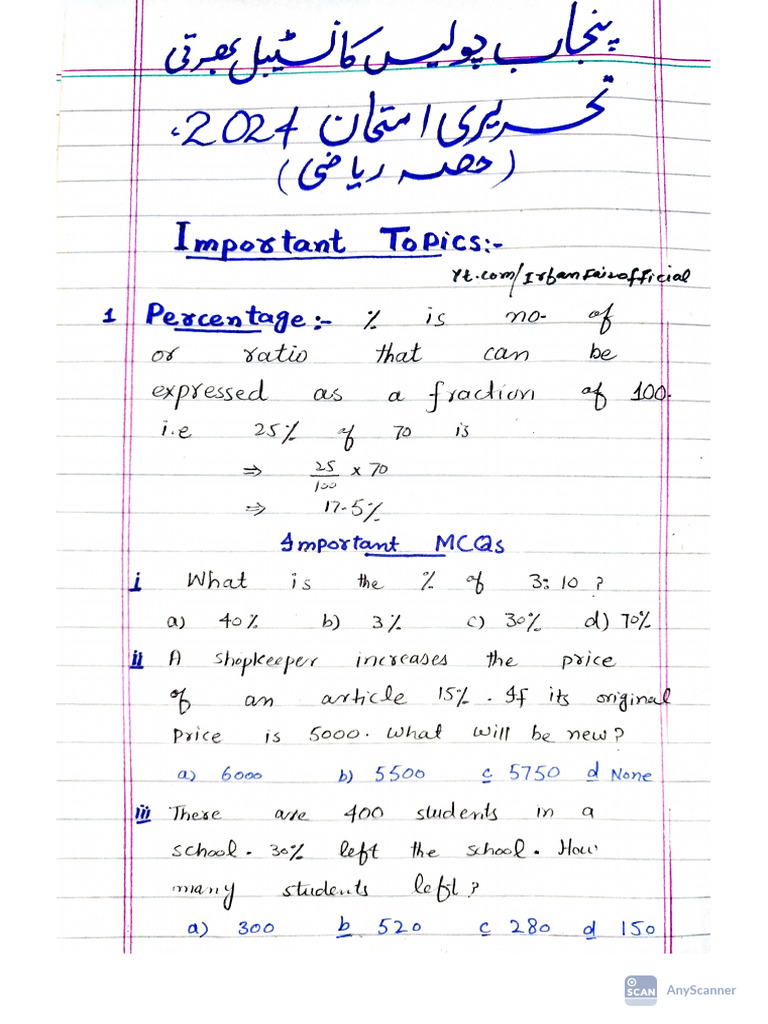 پنجاب پولیس کانسٹیبل بھرتی
تحریری امتحان 2024ء
(حصہ ریاضی)
Important Topics:-
Yt.com/IrfanFaizofficial
1 Percentage:- % is no. of
or ratio that can be
expressed as a fraction of 100.
i.e 25% of 70 is
⇒ 25/100 × 70
⇒ 17.5%
Important MCQs
i What is the % of 3:10?
a) 40% b) 3% c) 30% d) 70%
ii A shopkeeper increases the price
of an article 15%. If its original
Price is 5000. What will be new?
a) 6000 b) 5500 c 5750 d None
iii There are 400 students in a
school. 30% left the school. How
many students left?
a) 300 b 520 c 280 d 150
SCAN AnyScanner